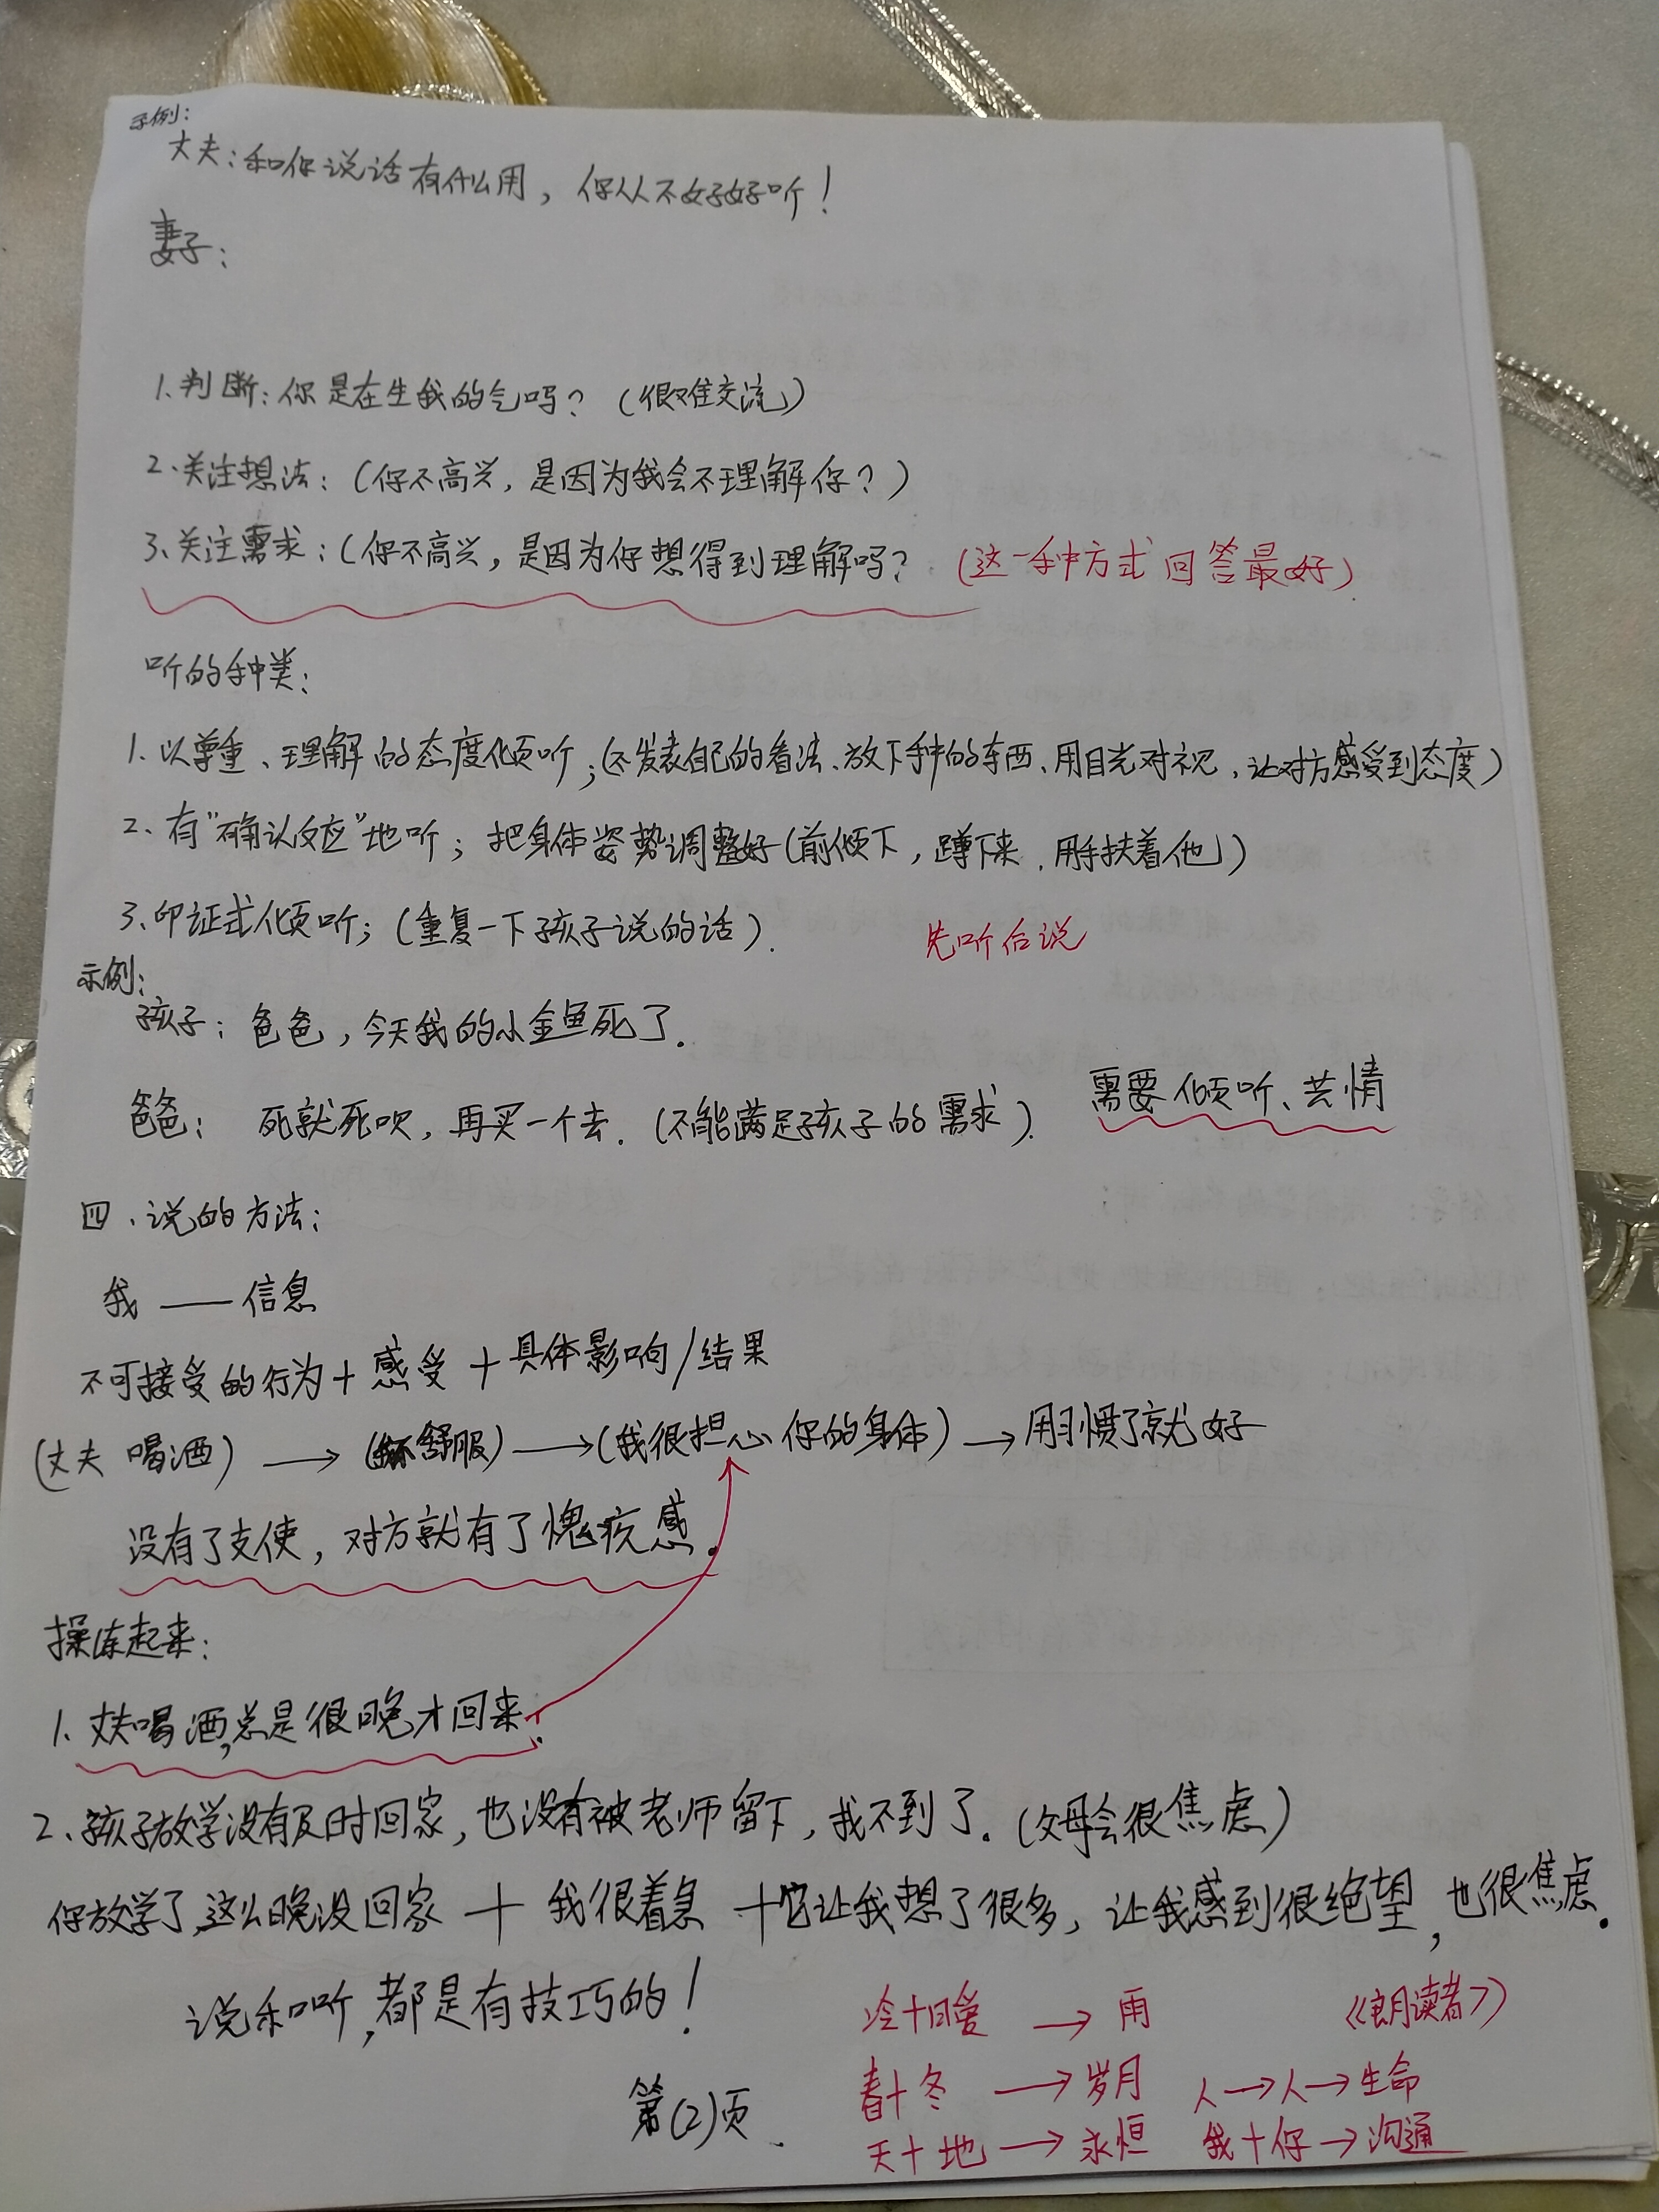 示例:
丈夫:和你说话有什么用，你从不好好听！
妻子:
1.判断:你是在生我的气吗？（很难交流）
2.关注想法:（你不高兴，是因为我会不理解你？）
3.关注需求:（你不高兴，是因为你想得到理解吗？（这一种方式回答最好）
听的种类:
1.以尊重、理解的态度倾听;（不发表自己的看法、放下手中的东西、用目光对视，让对方感受到态度）
2、有"确认反应"地听;把身体姿势调整好（前倾下，蹲下来、用手扶着他）
3、印证式倾听;（重复一下孩子说的话）. 先听后说
示例:
孩子:爸爸，今天我的小金鱼死了.
爸爸: 死就死呗，再买一个去.（不能满足孩子的需求）. 需要倾听、共情
四、说的方法:
我——信息
不可接受的行为+感受+具体影响/结果
（丈夫喝酒）→（不舒服）→（我很担心你的身体）→用习惯了就好
没有了支使，对方就有了愧疚感.
操练起来:
1、丈夫喝酒,总是很晚才回来.
2、孩子放学没有及时回家，也没有被老师留下，找不到了.（父母会很焦虑）
你放学了,这么晚没回家+我很着急+它让我想了很多，让我感到很绝望，也很焦虑.
说和听,都是有技巧的！
冷+暖→雨 《朗读者》
春+冬→岁月 人→人→生命
天+地→永恒 我+你→沟通
第(2)页.